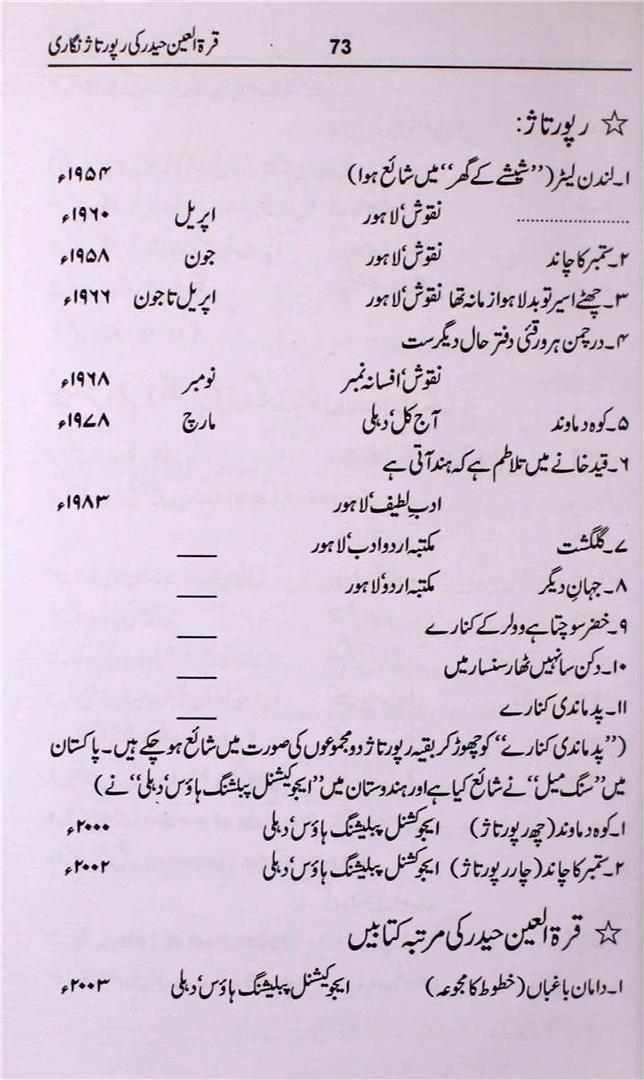 قرۃ العین حیدر کی رپورتاژ نگاری 73
☆ رپورتاژ:
۱۔لندن لیٹر (’’شیشے کے گھر‘‘ میں شائع ہوا) ۱۹۵۴ء
........................ نقوش‘ لاہور اپریل ۱۹۶۰ء
۲۔ستمبر کا چاند نقوش‘ لاہور جون ۱۹۵۸ء
۳۔چھٹے اسیر تو بدلا ہوا زمانہ تھا نقوش‘ لاہور اپریل تا جون ۱۹۶۶ء
۴۔درچمن ہر ورقئی دفتر حال دیگرست
نقوش‘ افسانہ نمبر نومبر ۱۹۶۸ء
۵۔کوہ دماوند آج کل‘ دہلی مارچ ۱۹۷۸ء
۶۔قید خانے میں تلاطم ہے کہ ہند آتی ہے
ادب لطیف‘ لاہور ۱۹۸۳ء
۷۔گلگشت مکتبہ اردو ادب‘ لاہور ___
۸۔جہانِ دیگر مکتبہ اردو‘ لاہور ___
۹۔خضر سوچتا ہے وولر کے کنارے ___
۱۰۔دکن سا نہیں ٹھار سنسار میں ___
۱۱۔پدما ندی کنارے ___
(’’پدما ندی کنارے‘‘ کو چھوڑ کر بقیہ رپورتاژ دو مجموعوں کی صورت میں شائع ہوچکے ہیں۔ پاکستان
میں ’’سنگ میل‘‘ نے شائع کیا ہے اور ہندوستان میں ’’ایجوکیشنل پبلیشنگ ہاؤس‘ دہلی‘‘ نے)
۱۔کوہ دماوند (چھ رپورتاژ) ایجوکشنل پبلیشنگ ہاؤس‘ دہلی ۲۰۰۰ء
۲۔ستمبر کا چاند (چار رپورتاژ) ایجوکشنل پبلیشنگ ہاؤس‘ دہلی ۲۰۰۲ء
☆ قرۃ العین حیدر کی مرتبہ کتابیں
۱۔دامان باغباں (خطوط کا مجموعہ) ایجوکشنل پبلیشنگ ہاؤس‘ دہلی ۲۰۰۳ء